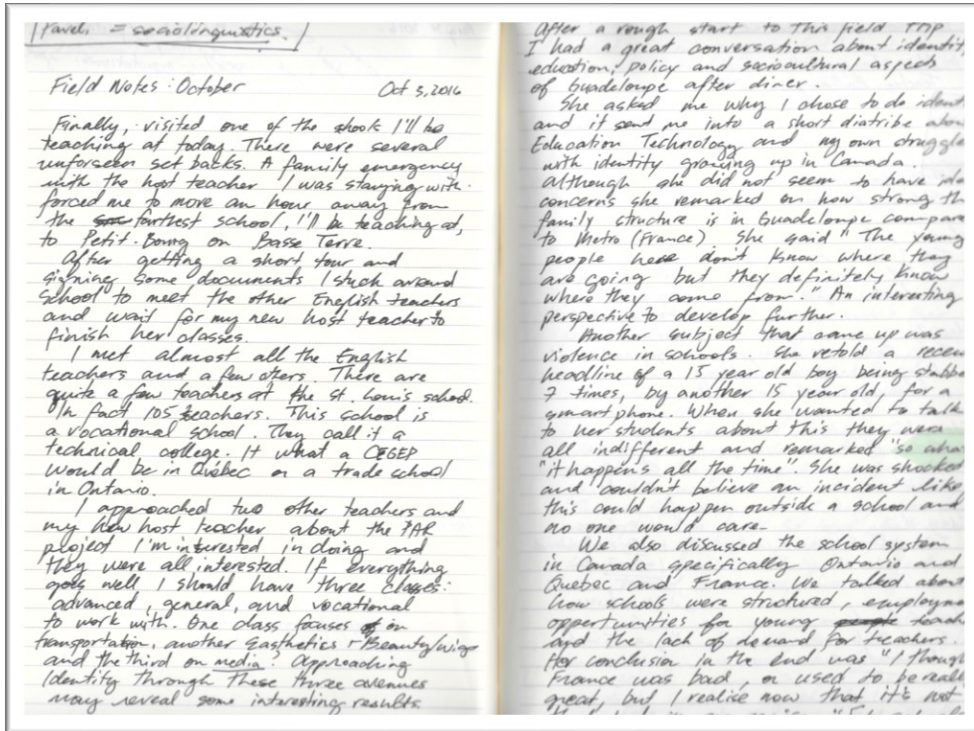 = sociolinguistics.
Field Notes: October Oct 3, 2016
Finally, visited one of the shools I'll be
teaching at today. There were several
unforseen set backs. A family emergency
with the host teacher I was staying with
forced me to move an hour away from
the furthest school, I'll be teaching at,
to Petit-Bourg on Basse Terre.
After getting a short tour and
signing some documents I stuck around
school to meet the other English teachers
and wait for my new host teacher to
finish her classes.
I met almost all the English
teachers and a few others. There are
quite a few teachers at the St. Louis school.
In fact 105 teachers. This school is
a vocational school. They call it a
technical college. It what a CEGEP
would be in Québec or a trade school
in Ontario.
I approached two other teachers and
my new host teacher about the PAR
project I'm interested in doing and
they were all interested. If everything
goes well I should have three classes:
advanced, general, and vocational
to work with. One class focuses on
transportation, another Easthetics + Beauty
and the third on media. Approaching
Identity through these three avenues
may reveal some interesting results
After a rough start to this field trip
I had a great conversation about
education, policy and sociocultural aspects
of Guadeloupe after diner.
She asked me why I chose to do
and it sent me into a short diatribe
Education Technology and my own
with identity growing up in Canada.
although she did not seem to have
concerns she remarked on how strong
family structure is in Guadeloupe
to Metro (France). She said "The young
people here don't know where they
are going but they definitely know
where they come from." An interesting
perspective to develop further.
Another subject that came up was
violence in schools. She retold a
headline of a 15 year old boy being
7 times, by another 15 year old, for a
smart phone. When she wanted to talk
to her students about this they were
all indifferent and remarked "so
"it happens all the time". She was shocked
and couldn't believe an incident like
this could happen outside a school and
no one would care.
We also discussed the school system
in Canada specifically Ontario and
Quebec and France. We talked about
how schools were structured,
opportunities for young
and the lack of demand for teachers.
Her conclusion in the end was "I
France was bad, or used to be
great, but I realise now that it's not